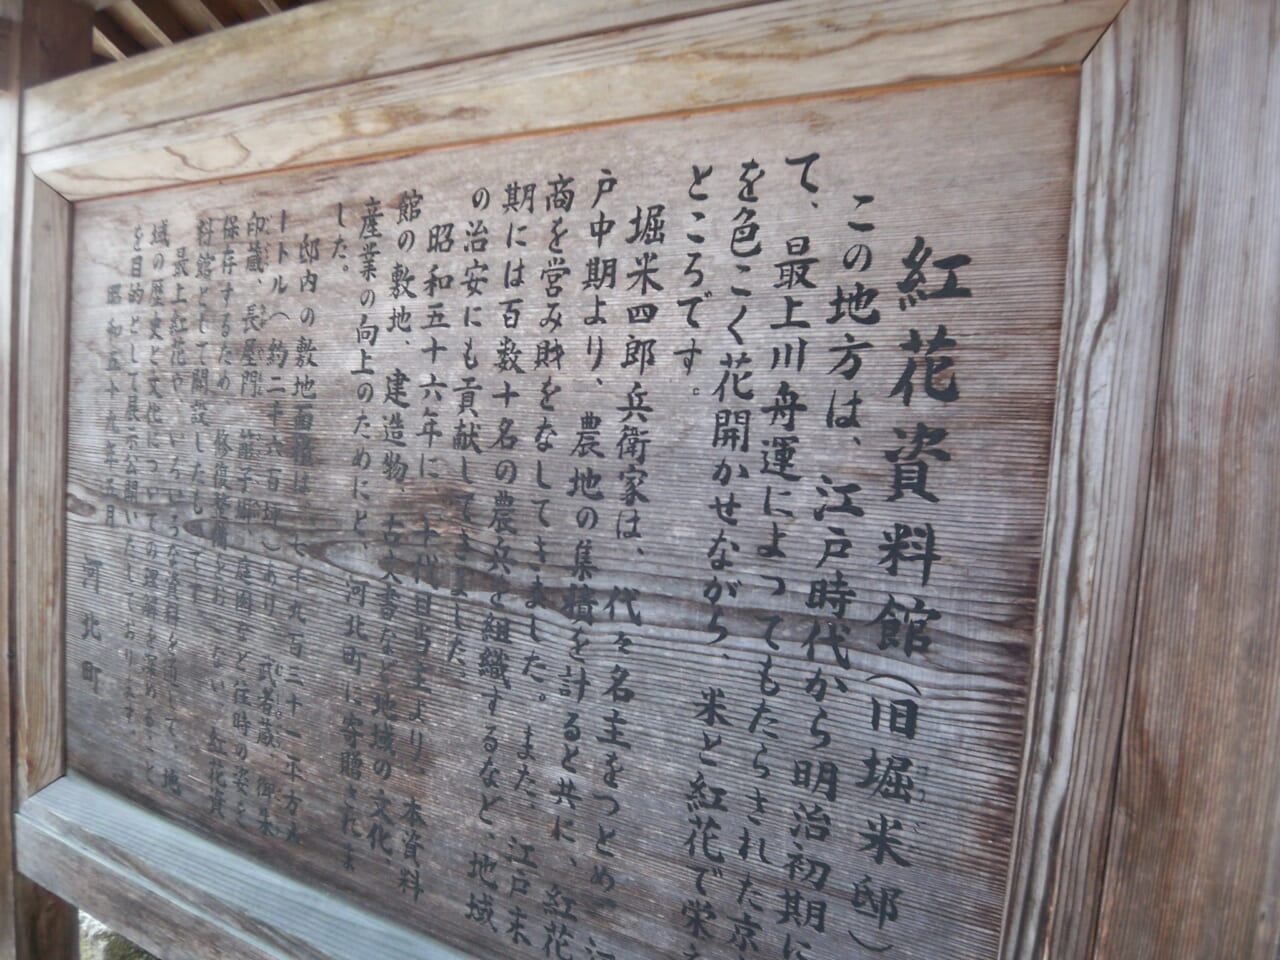 紅花資料館（旧堀米邸）
この地方は、江戸時代から明治初期に
て、最上川舟運によってもたらされた京
を色こく花開かせながら、米と紅花で栄え
ところです。
堀米四郎兵衛家は、代々名主をつとめ、江
戸中期より、農地の集積を計ると共に、紅花
商を営み財をなしてきました。また、江戸末
期には百数十名の農兵を組織するなど、地域
の治安にも貢献してきました。
昭和五十六年に、十代目当主より、本資料
館の敷地、建造物、古文書など地域の文化、
産業の向上のためにと、河北町に寄贈されま
した。
邸内の敷地面積は、七千九百三十二平方メ
ートル（約二千六百坪）あり、武者蔵、御朱
印蔵、長屋門、庭園など往時の姿を
保存するため、修復整備をおこない、紅花資
料館として開設したものです。
最上紅花や、いろいろな資料を通して、地
域の歴史と文化についての理解を深めること
を目的として展示公開いたしております。
昭和五十九年五月　河北町